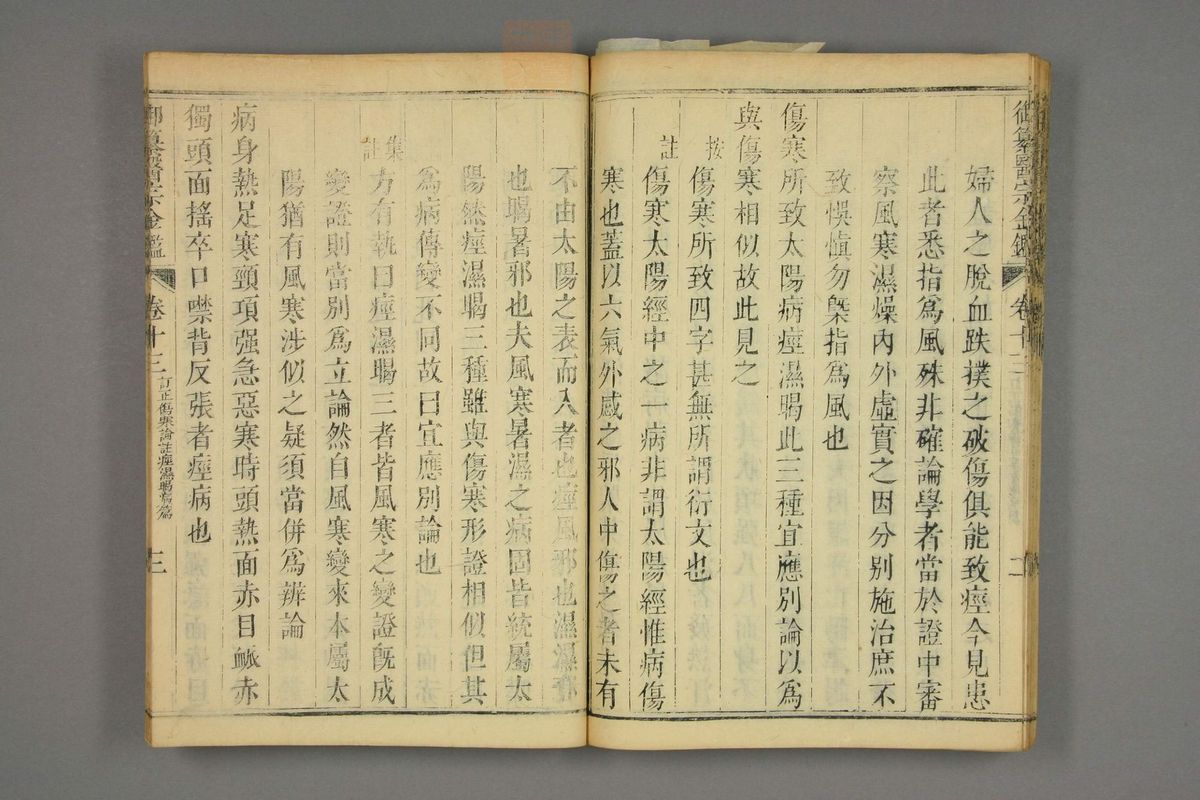 御纂醫宗金鑑 卷十三 二
婦人之脫血跌撲之破傷俱能致痙今見患
此者悉指爲風殊非確論學者當於證中審
察風寒濕燥內外虛實之因分別施治庶不
致悞愼勿槩指爲風也
傷寒所致太陽病痙濕暍此三種宜應別論以爲
與傷寒相似故此見之
按 傷寒所致四字甚無所謂衍文也
註 傷寒太陽經中之一病非謂太陽經惟病傷
寒也蓋以六氣外感之邪人中傷之者未有
不由太陽之表而入者也痙風邪也濕濕邪
也暍暑邪也夫風寒暑濕之病固皆統屬太
陽然痙濕暍三種雖與傷寒形證相似但其
爲病傳變不同故曰宜應別論也
集註 方有執曰痙濕暍三者皆風寒之變證旣成
變證則當別爲立論然自風寒變來本屬太
陽猶有風寒涉似之疑須當併爲辨論
病身熱足寒頸項强急惡寒時頭熱面赤目䘑赤
獨頭面搖卒口噤背反張者痙病也
御纂醫宗金鑑 卷十三 訂正傷寒論註痙濕暍病篇 三